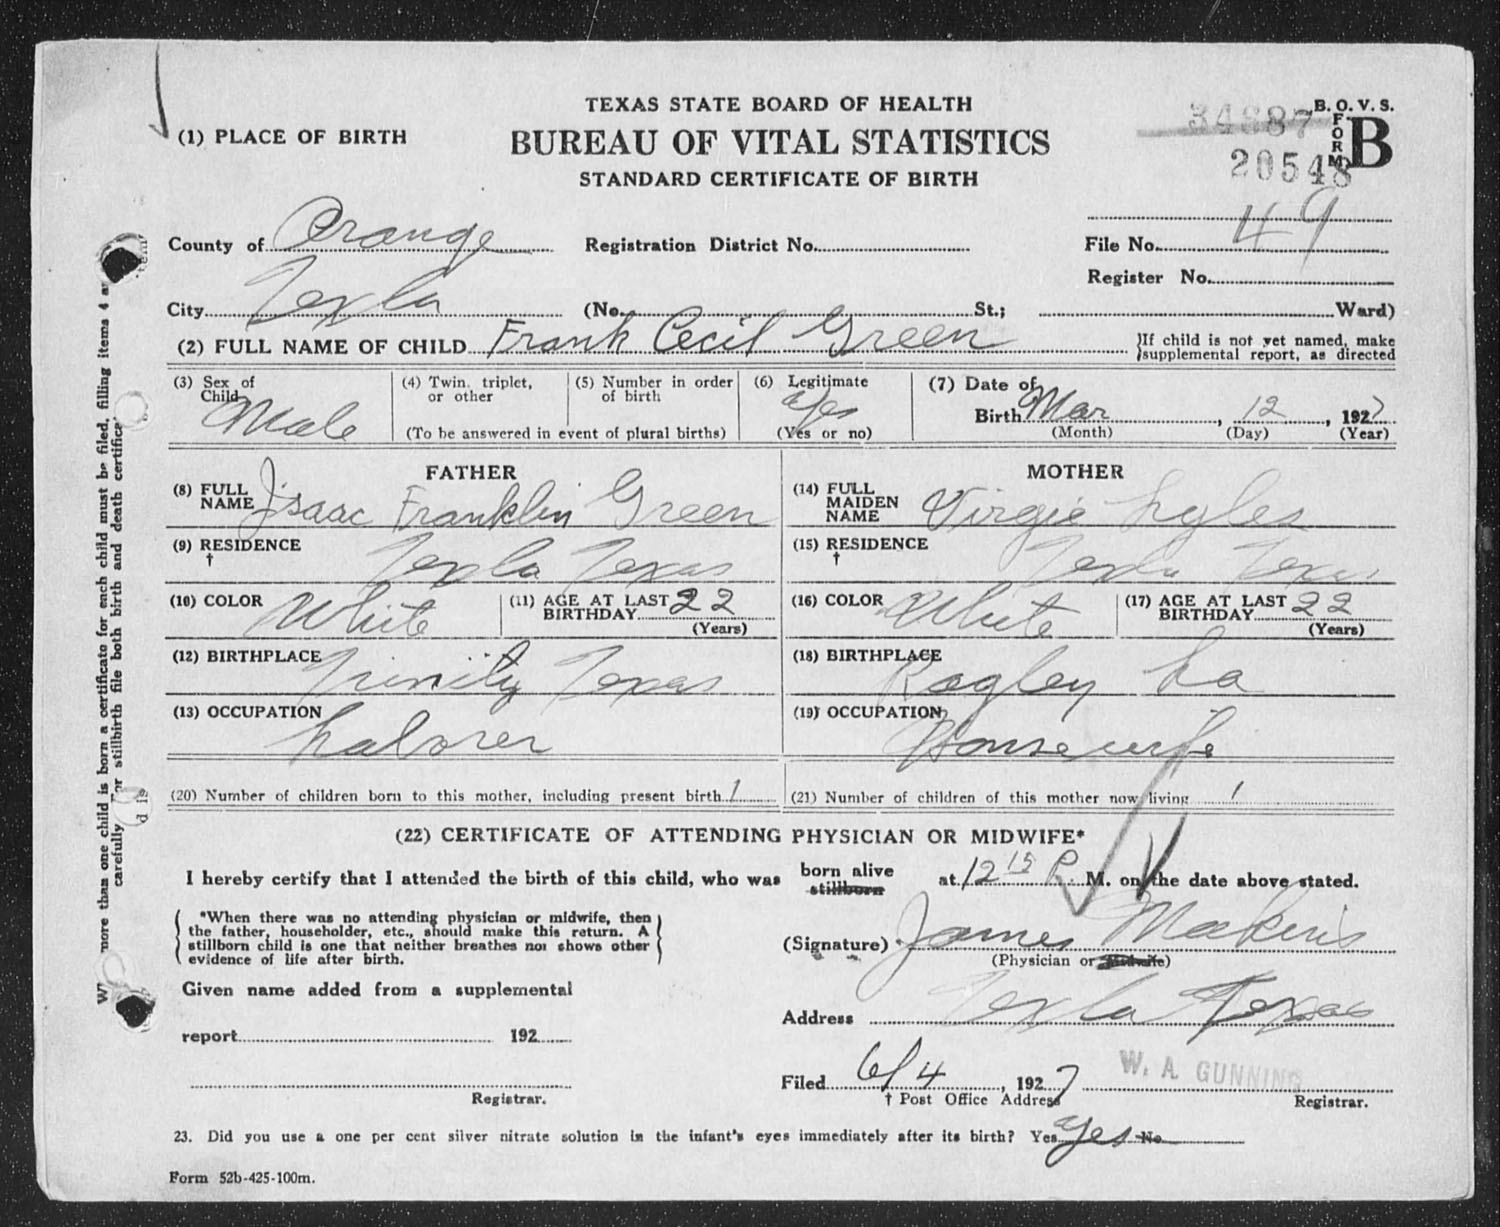 TEXAS STATE BOARD OF HEALTH
B. O. V. S.
(1) PLACE OF BIRTH
BUREAU OF VITAL STATISTICS
FORM B
STANDARD CERTIFICATE OF BIRTH
20548
County of Orange Registration District No. File No. 49
Register No.
City Texla (No. St.; Ward)
(2) FULL NAME OF CHILD Frank Cecil Green }If child is not yet named, make
}supplemental report, as directed
(3) Sex of Child Male (4) Twin, triplet, or other (5) Number in order of birth (To be answered in event of plural births) (6) Legitimate Yes (Yes or no) (7) Date of Birth Mar 12, 1927
(Month) (Day) (Year)
FATHER MOTHER
(8) FULL NAME Isaac Franklin Green (14) FULL MAIDEN NAME Virgie Lyles
(9) RESIDENCE † Texla Texas (15) RESIDENCE † Texla Texas
(10) COLOR White (11) AGE AT LAST BIRTHDAY 22 (Years) (16) COLOR White (17) AGE AT LAST BIRTHDAY 22 (Years)
(12) BIRTHPLACE Trinity Texas (18) BIRTHPLACE Ragley La
(13) OCCUPATION Laborer (19) OCCUPATION Housewife
(20) Number of children born to this mother, including present birth 1 (21) Number of children of this mother now living 1
(22) CERTIFICATE OF ATTENDING PHYSICIAN OR MIDWIFE*
I hereby certify that I attended the birth of this child, who was born alive stillborn at 12 15 P. M. on the date above stated.
*When there was no attending physician or midwife, then
the father, householder, etc., should make this return. A
stillborn child is one that neither breathes nor shows other
evidence of life after birth.
(Signature) James Makins
(Physician or Midwife)
Given name added from a supplemental
Address Texla Texas
report 192
Filed 6/4, 1927 W. A. GUNNING
Registrar. † Post Office Address Registrar.
23. Did you use a one per cent silver nitrate solution in the infant's eyes immediately after its birth? Yes Yes No
Form 52b-425-100m.
more than one child is born a certificate for each child must be filed, filling items 4 a
carefully or stillbirth file both birth and death certifica